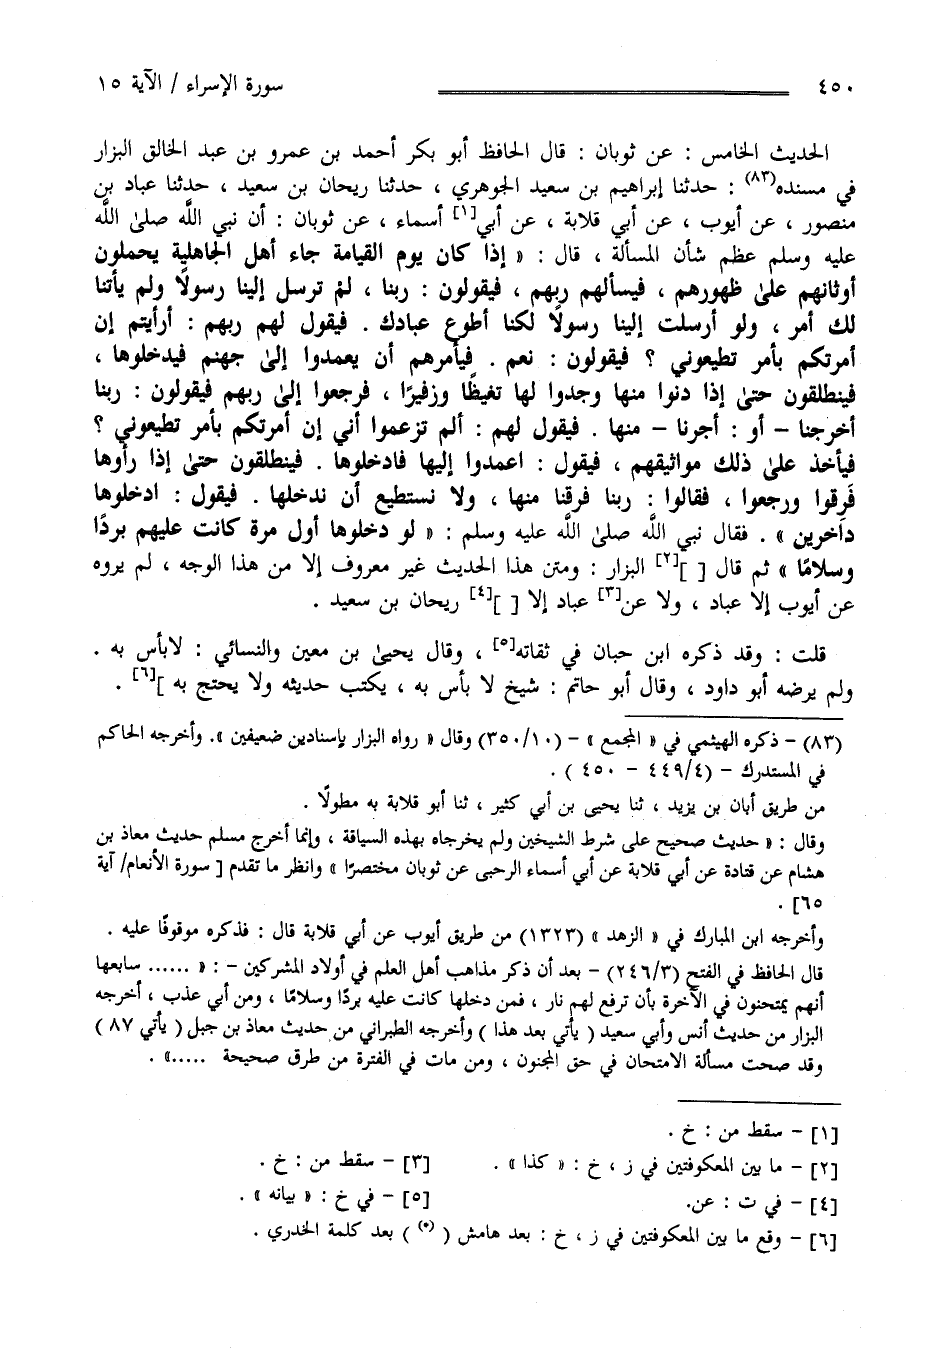 ٤٥٠ سورة الإسراء / الآية ١٥
الحديث الخامس : عن ثوبان : قال الحافظ أبو بكر أحمد بن عمرو بن عبد الخالق البزار
في مسنده(٨٣) : حدثنا إبراهيم بن سعيد الجوهري ، حدثنا ريحان بن سعيد ، حدثنا عباد بن
منصور ، عن أيوب ، عن أبي قلابة ، عن أبي[١] أسماء ، عن ثوبان : أن نبي اللَّه صلىٰ اللَّه
عليه وسلم عظم شأن المسألة ، قال : « إذا كان يوم القيامة جاء أهل الجاهلية يحملون
أوثانهم علىٰ ظهورهم ، فيسألهم ربهم ، فيقولون : ربنا ، لم ترسل إلينا رسولًا ولم يأتنا
لك أمر ، ولو أرسلت إلينا رسولًا لكنا أطوع عبادك . فيقول لهم ربهم : أرأيتم إن
أمرتكم بأمر تطيعوني ؟ فيقولون : نعم . فيأمرهم أن يعمدوا إلىٰ جهنم فيدخلوها ،
فينطلقون حتىٰ إذا دنوا منها وجدوا لها تغيظًا وزفيرًا ، فرجعوا إلىٰ ربهم فيقولون : ربنا
أخرجنا – أو : أجرنا – منها . فيقول لهم : ألم تزعموا أني إن أمرتكم بأمر تطيعوني ؟
فيأخذ علىٰ ذلك مواثيقهم ، فيقول : اعمدوا إليها فادخلوها . فينطلقون حتىٰ إذا رأوها
فَرِقوا ورجعوا ، فقالوا : ربنا فرقنا منها ، ولا نستطيع أن ندخلها . فيقول : ادخلوها
داخرين » . فقال نبي اللَّه صلىٰ اللَّه عليه وسلم : « لو دخلوها أول مرة كانت عليهم بردًا
وسلامًا » ثم قال [ ][٢] البزار : ومتن هذا الحديث غير معروف إلا من هذا الوجه ، لم يروه
عن أيوب إلا عباد ، ولا عن[٣] عباد إلا [ ][٤] ريحان بن سعيد .
قلت : وقد ذكره ابن حبان في ثقاته[٥] ، وقال يحيىٰ بن معين والنسائي : لابأس به .
ولم يرضه أبو داود ، وقال أبو حاتم : شيخ لا بأس به ، يكتب حديثه ولا يحتج به ][٦] .
(٨٣) – ذكره الهيثمي في « المجمع » – (٣٥٠/١٠) وقال « رواه البزار بإسنادين ضعيفين ». وأخرجه الحاكم
في المستدرك – (٤٤٩/٤ – ٤٥٠ ) .
من طريق أبان بن يزيد ، ثنا يحيى بن أبي كثير ، ثنا أبو قلابة به مطولًا .
وقال : « حديث صحيح على شرط الشيخين ولم يخرجاه بهذه السياقة ، وإنما أخرج مسلم حديث معاذ بن
هشام عن قتادة عن أبي قلابة عن أبي أسماء الرحبى عن ثوبان مختصرًا » وانظر ما تقدم [ سورة الأنعام/ آية
٦٥] .
وأخرجه ابن المبارك في « الزهد » (١٣٢٣) من طريق أيوب عن أبي قلابة قال : فذكره موقوفًا عليه .
قال الحافظ في الفتح (٢٤٦/٣) – بعد أن ذكر مذاهب أهل العلم في أولاد المشركين – : « ...... سابعها
أنهم يمتحنون في الآخرة بأن ترفع لهم نار ، فمن دخلها كانت عليه بردًا وسلامًا ، ومن أبي عذب ، أخرجه
البزار من حديث أنس وأبي سعيد ( يأتي بعد هذا ) وأخرجه الطبراني من حديث معاذ بن جبل ( يأتي ٨٧ )
وقد صحت مسألة الامتحان في حق المجنون ، ومن مات في الفترة من طرق صحيحة .....» .
[١] – سقط من : خ .
[٢] – ما بين المعكوفتين في ز ، خ : « كذا » . [٣] – سقط من : خ .
[٤] – في ت : عن. [٥] – في خ : « بيانه » .
[٦] – وقع ما بين المعكوفتين في ز ، خ : بعد هامش ( (*) ) بعد كلمة الخدري .